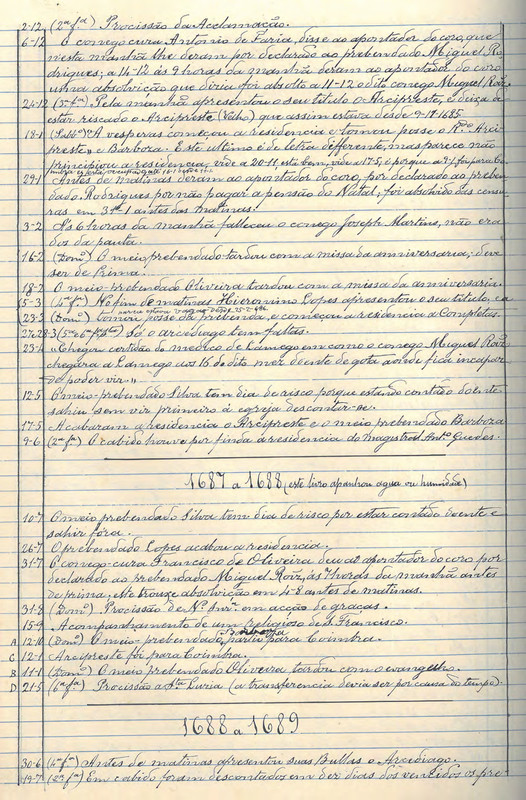 2-12 (2ª fª) Procissão da Acclamação.
6-12 O conego cura Antonio de Faria, disse ao apontador do coro, que
nesta manhã lhe deram por declarado ao prebendado Miguel Ro-
drigues; a 14-12 ás 9 horas da manhã deram ao apontador do coro
uma absolvição que dizia foi absolto a 11-12 o dito conego Miguel Roiz.
24-12 (3ª fª). Pela manhã apresentou o seu titulo o Arcipreste, e deixa de
estar riscado o Arcipreste (Velho) que assim estava desde 9-17-1685.
18-1 (Sabbº) "A vesperas começou a residencia e tomou posse o Rdº Arci-
preste" e Barboza. Este ultimo é de letra differente, mas parece não
principiou a residencia, vide a 20-11 está bem, vide a 17-5 é porque a 9-1 foi para Co-
29-1 Antes de matinas deram ao apontador do coro, por declarado ao prebe-
dado Rodrigues por não pagar a pensão do Natal; foi absolvido das censu-
ras em 31-1 antes das matinas.
3-2 Ás 6 horas da manhã falleceu o conego Joseph Martins, não era
dos da pauta.
16-2 (Domº) O meio prebendado tardou com a missa da anniversaria; deve
ser de Prima.
18-2 O meio-prebendado Oliveira tardou com a missa da anniversaria.
15-3 (4ª fª) No fim de matinas Hieronimo Lopes apresentou o seu titulo, e a
23-3 (Domº) tomou posse da prebenda, e começou a residencia a Completas.
27, 28-3 (5ª e 6ª fªs) Só o arcediago tem faltas.
25-4 "Chegou certidão do medico de Lamego em como o conego Miguel Roiz
chegára a Lamego aos 16 do dito mez doente de gota aonde fica incapaz
de poder vir."
12-5 O meio-prebendado Silva tem dia de risco porque estando contado doente
sahiu sem vir primeiro á egreja descontar-se.
17-5 Acabaram a residencia o Arcipreste e o meio prebendado Barboza
9-6 (2ª fª) O cabido houve por finda a residencia do magistral Antº Guedes.
1687 a 1688 (este livro apanhou agua ou humidade)
10-7 O meio prebendado Silva tem dia de risco por estar contado doente e
sahir fóra.
26-7 O prebendado Lopes acabou a residencia.
31-7 O conego-cura Francisco de Oliveira deu ao apontador do coro por
declarado ao prebendado Miguel Roiz, ás 7 horas da manhã antes
de prima. Me trouxe absolvição em 4-8 antes de matinas.
31-8 (Domº) Procissão de N. Snrª em acção de graças.
15-9 Acompanhamento de um religioso de S. Francisco.
A 12-10 (Domº) O meio-prebendado Barboza partiu para Coimbra.
C 12-1 Arcipreste foi para Coimbra.
B 11-1 (Domº) O meio prebendado Oliveira tardou com o evangelho.
D 21-5 (6ª fª) Procissão a Sta Luzia (a transferencia devia ser por causa do tempo).
1688 a 1689
30-6 (4ª fª) Antes de matinas apresentou suas Bullas o Arcediago.
19-7 (2ª fª) Em cabido foram descontados em dez dias dos vencidos os pre-